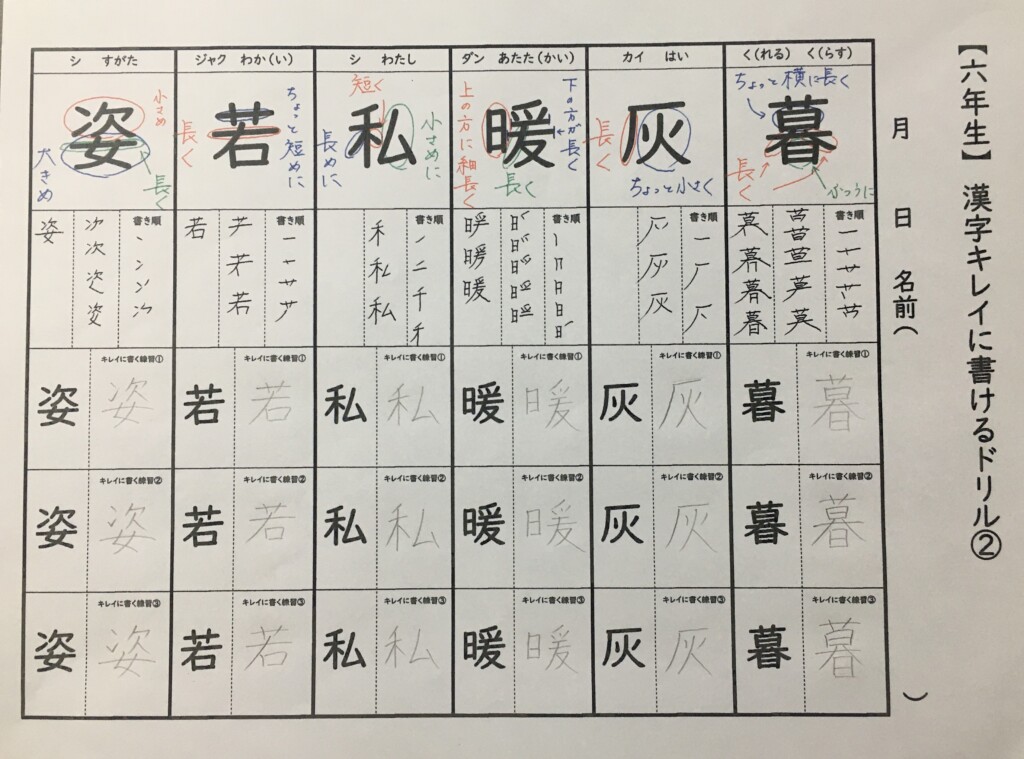 【六年生】 漢字キレイに書けるドリル②
月 日 名前( )
く(れる) く(らす)
暮
ちょっと横に長く
長く
ふつうに
書き順
キレイに書く練習①
暮 暮
キレイに書く練習②
暮 暮
キレイに書く練習③
暮 暮
カイ はい
灰
長く
ちょっと小さく
書き順
キレイに書く練習①
灰 灰
キレイに書く練習②
灰 灰
キレイに書く練習③
灰 灰
ダン あたた(かい)
暖
下の方が長く
上の方に細長く
長く
書き順
キレイに書く練習①
暖 暖
キレイに書く練習②
暖 暖
キレイに書く練習③
暖 暖
シ わたし
私
短く
小さめに
長めに
書き順
キレイに書く練習①
私 私
キレイに書く練習②
私 私
キレイに書く練習③
私 私
ジャク わか(い)
若
ちょっと短めに
長く
書き順
キレイに書く練習①
若 若
キレイに書く練習②
若 若
キレイに書く練習③
若 若
シ すがた
姿
小さめ
長く
大きめ
書き順
キレイに書く練習①
姿 姿
キレイに書く練習②
姿 姿
キレイに書く練習③
姿 姿